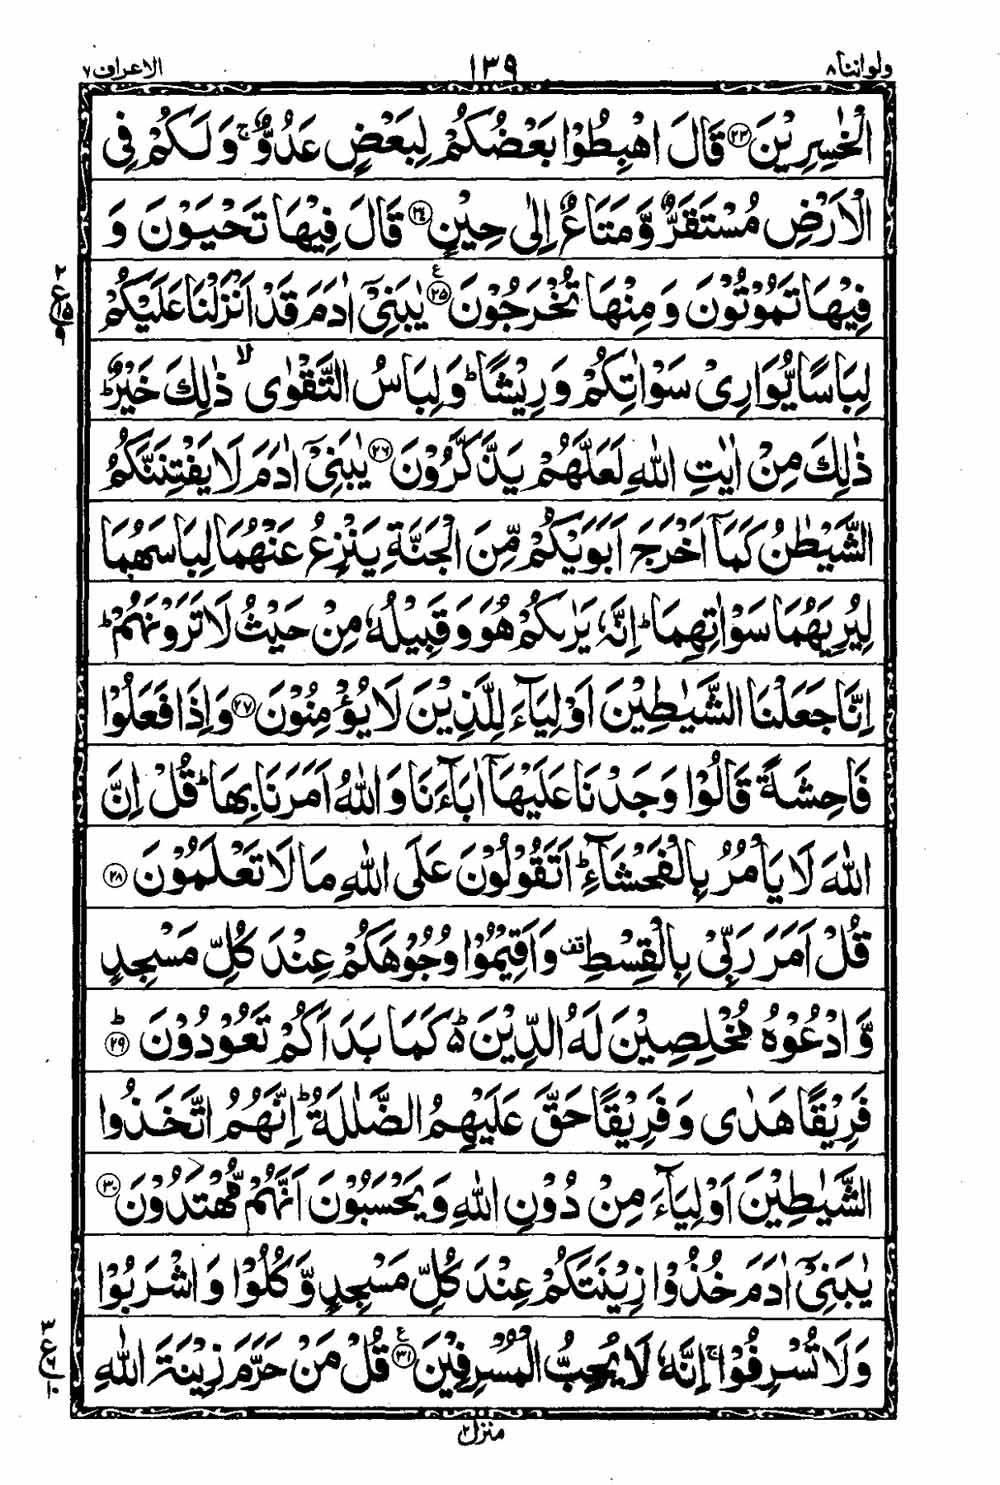 ولواننا ٨ ١٣٩ الاعراف ٧
الْخٰسِرِيْنَ ﴿٢٣﴾ قَالَ اهْبِطُوْا بَعْضُكُمْ لِبَعْضٍ عَدُوٌّ ۚ وَلَكُمْ فِی
الْاَرْضِ مُسْتَقَرٌّ وَّ مَتَاعٌ اِلٰی حِيْنٍ ﴿٢٤﴾ قَالَ فِيْهَا تَحْيَوْنَ وَ
فِيْهَا تَمُوْتُوْنَ وَ مِنْهَا تُخْرَجُوْنَ ﴿٢٥﴾ ع يٰبَنِیْۤ اٰدَمَ قَدْ اَنْزَلْنَا عَلَيْكُمْ
٢ ع ١٥ ٩
لِبَاسًا يُّوَارِیْ سَوْاٰتِكُمْ وَ رِيْشًا ؕ وَ لِبَاسُ التَّقْوٰی ۙ ذٰلِكَ خَيْرٌ ؕ
ذٰلِكَ مِنْ اٰيٰتِ اللّٰهِ لَعَلَّهُمْ يَذَّكَّرُوْنَ ﴿٢٦﴾ يٰبَنِیْۤ اٰدَمَ لَا يَفْتِنَنَّكُمُ
الشَّيْطٰنُ كَمَاۤ اَخْرَجَ اَبَوَيْكُمْ مِّنَ الْجَنَّةِ يَنْزِعُ عَنْهُمَا لِبَاسَهُمَا
لِيُرِيَهُمَا سَوْاٰتِهِمَا ؕ اِنَّهٗ يَرٰىكُمْ هُوَ وَ قَبِيْلُهٗ مِنْ حَيْثُ لَا تَرَوْنَهُمْ ؕ
اِنَّا جَعَلْنَا الشَّيٰطِيْنَ اَوْلِيَآءَ لِلَّذِيْنَ لَا يُؤْمِنُوْنَ ﴿٢٧﴾ وَ اِذَا فَعَلُوْا
فَاحِشَةً قَالُوْا وَجَدْنَا عَلَيْهَاۤ اٰبَآءَنَا وَ اللّٰهُ اَمَرَنَا بِهَا ؕ قُلْ اِنَّ
اللّٰهَ لَا يَاْمُرُ بِالْفَحْشَآءِ ؕ اَتَقُوْلُوْنَ عَلَی اللّٰهِ مَا لَا تَعْلَمُوْنَ ﴿٢٨﴾
قُلْ اَمَرَ رَبِّیْ بِالْقِسْطِ قف وَ اَقِيْمُوْا وُجُوْهَكُمْ عِنْدَ كُلِّ مَسْجِدٍ
وَّ ادْعُوْهُ مُخْلِصِيْنَ لَهُ الدِّيْنَ ۵ كَمَا بَدَاَكُمْ تَعُوْدُوْنَ ﴿٢٩﴾ ؕ
فَرِيْقًا هَدٰی وَ فَرِيْقًا حَقَّ عَلَيْهِمُ الضَّلٰلَةُ ؕ اِنَّهُمُ اتَّخَذُوا
الشَّيٰطِيْنَ اَوْلِيَآءَ مِنْ دُوْنِ اللّٰهِ وَ يَحْسَبُوْنَ اَنَّهُمْ مُّهْتَدُوْنَ ﴿٣٠﴾
يٰبَنِیْۤ اٰدَمَ خُذُوْا زِيْنَتَكُمْ عِنْدَ كُلِّ مَسْجِدٍ وَّ كُلُوْا وَ اشْرَبُوْا
وَ لَا تُسْرِفُوْا ۚ اِنَّهٗ لَا يُحِبُّ الْمُسْرِفِيْنَ ﴿٣١﴾ ع قُلْ مَنْ حَرَّمَ زِيْنَةَ اللّٰهِ
٣ ع ٦ ١٠
منزل ٢